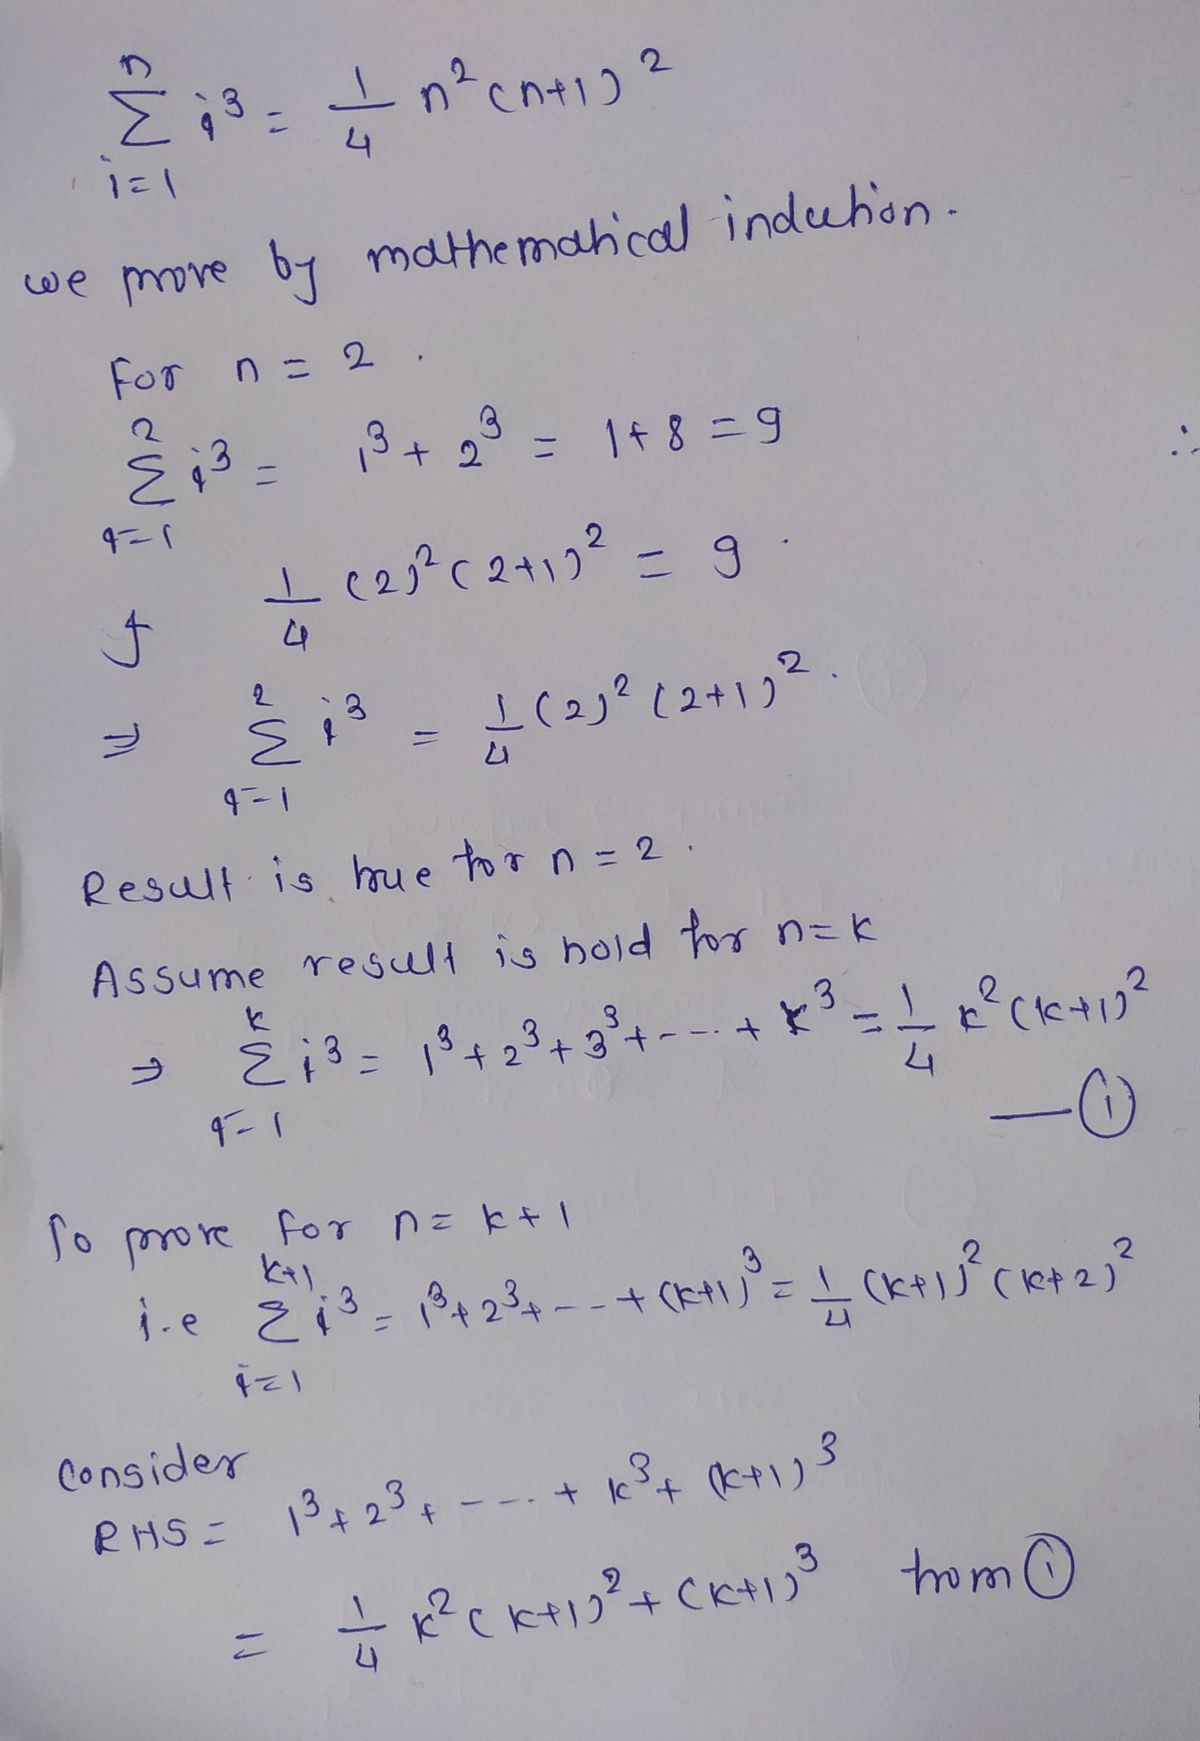 n
Σ i³ = 1/4 n² (n+1)²
i=1
we prove by mathematical induction.
For n = 2.
2
Σ i³ = 1³ + 2³ = 1+8 = 9
i=1
∴
1/4 (2)² (2+1)² = 9.
⇒ 2
Σ i³ = 1/4 (2)² (2+1)².
i=1
Result is true for n = 2.
Assume result is hold for n=k
k
⇒ Σ i³ = 1³ + 2³ + 3³ + ---- + k³ = 1/4 k² (k+1)²
i=1
—①
To prove for n = k+1
k+1
i.e Σ i³ = 1³+2³+---+(k+1)³ = 1/4 (k+1)² (k+2)²
i=1
Consider
RHS = 1³+2³+ ----. + k³+ (k+1)³
= 1/4 k² (k+1)² + (k+1)³ from ①